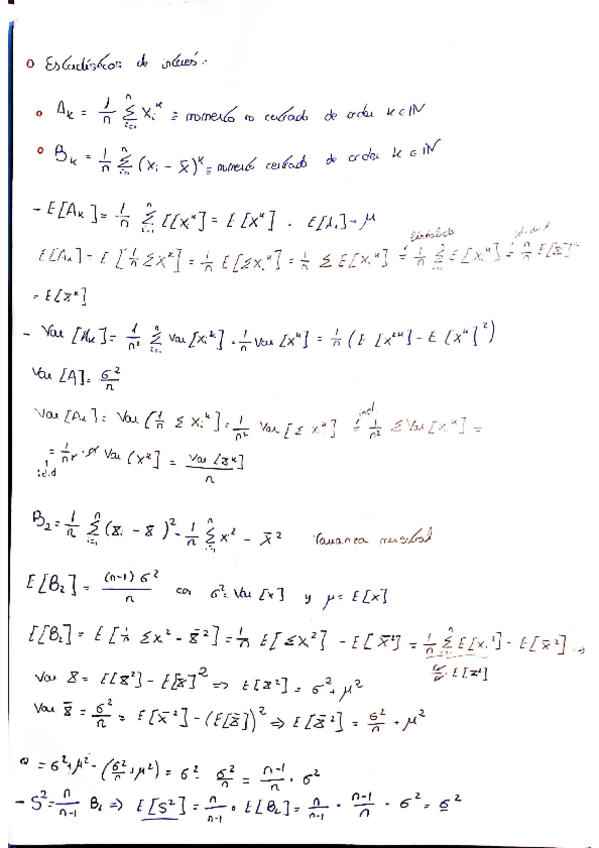 o Estadísticos de interés.
o A_k = 1/n Σ_{i=1}^n X_i^k ≡ momento no centrado de orden k ∈ ℕ
o B_k = 1/n Σ_{i=1}^n (X_i - X̄)^k ≡ momento centrado de orden k ∈ ℕ
- E[A_k] = 1/n Σ_{i=1}^n E[X^k] = E[X^k] . E[A_1] = μ
E[A_k] = E[1/n Σ X^k] = 1/n E[Σ X_i^k] = 1/n Σ E[X_i^k] = 1/n Σ_{i=1}^n E[X^k] = 1/n · n E[X]^k
= E[X^k]
- Var[A_k] = 1/n² Σ_{i=1}^n Var[X_i^k] = 1/n Var[X^k] = 1/n (E[X^{2k}] - E[X^k]²)
Var[A] = σ²/n
Var[A_k] = Var(1/n Σ X_i^k) = 1/n² Var[Σ X_i^k] = ind 1/n² Σ Var[X_i^k] =
= 1/n² · n Var(X^k) = Var[X^k]/n
i.d.d
B_2 = 1/n Σ_{i=1}^n (X_i - X̄)² = 1/n Σ_{i=1}^n X² - X̄² Varianza muestral
E[B_2] = (n-1)σ²/n con σ² = Var[X] y μ = E[X]
E[B_2] = E[1/n Σ X² - X̄²] = 1/n E[Σ X²] - E[X̄²] = 1/n Σ_{i=1}^n E[X_i²] - E[X̄²] ⇒
n/n · E[X²]
Var X = E[X²] - E[X]² ⇒ E[X²] = σ² + μ²
Var X̄ = σ²/n = E[X̄²] - (E[X̄])² ⇒ E[X̄²] = σ²/n + μ²
= σ² + μ² - (σ²/n + μ²) = σ² - σ²/n = n-1/n · σ²
- S² = n/n-1 B_2 ⇒ E[S²] = n/n-1 · E[B_2] = n/n-1 · n-1/n · σ² = σ²